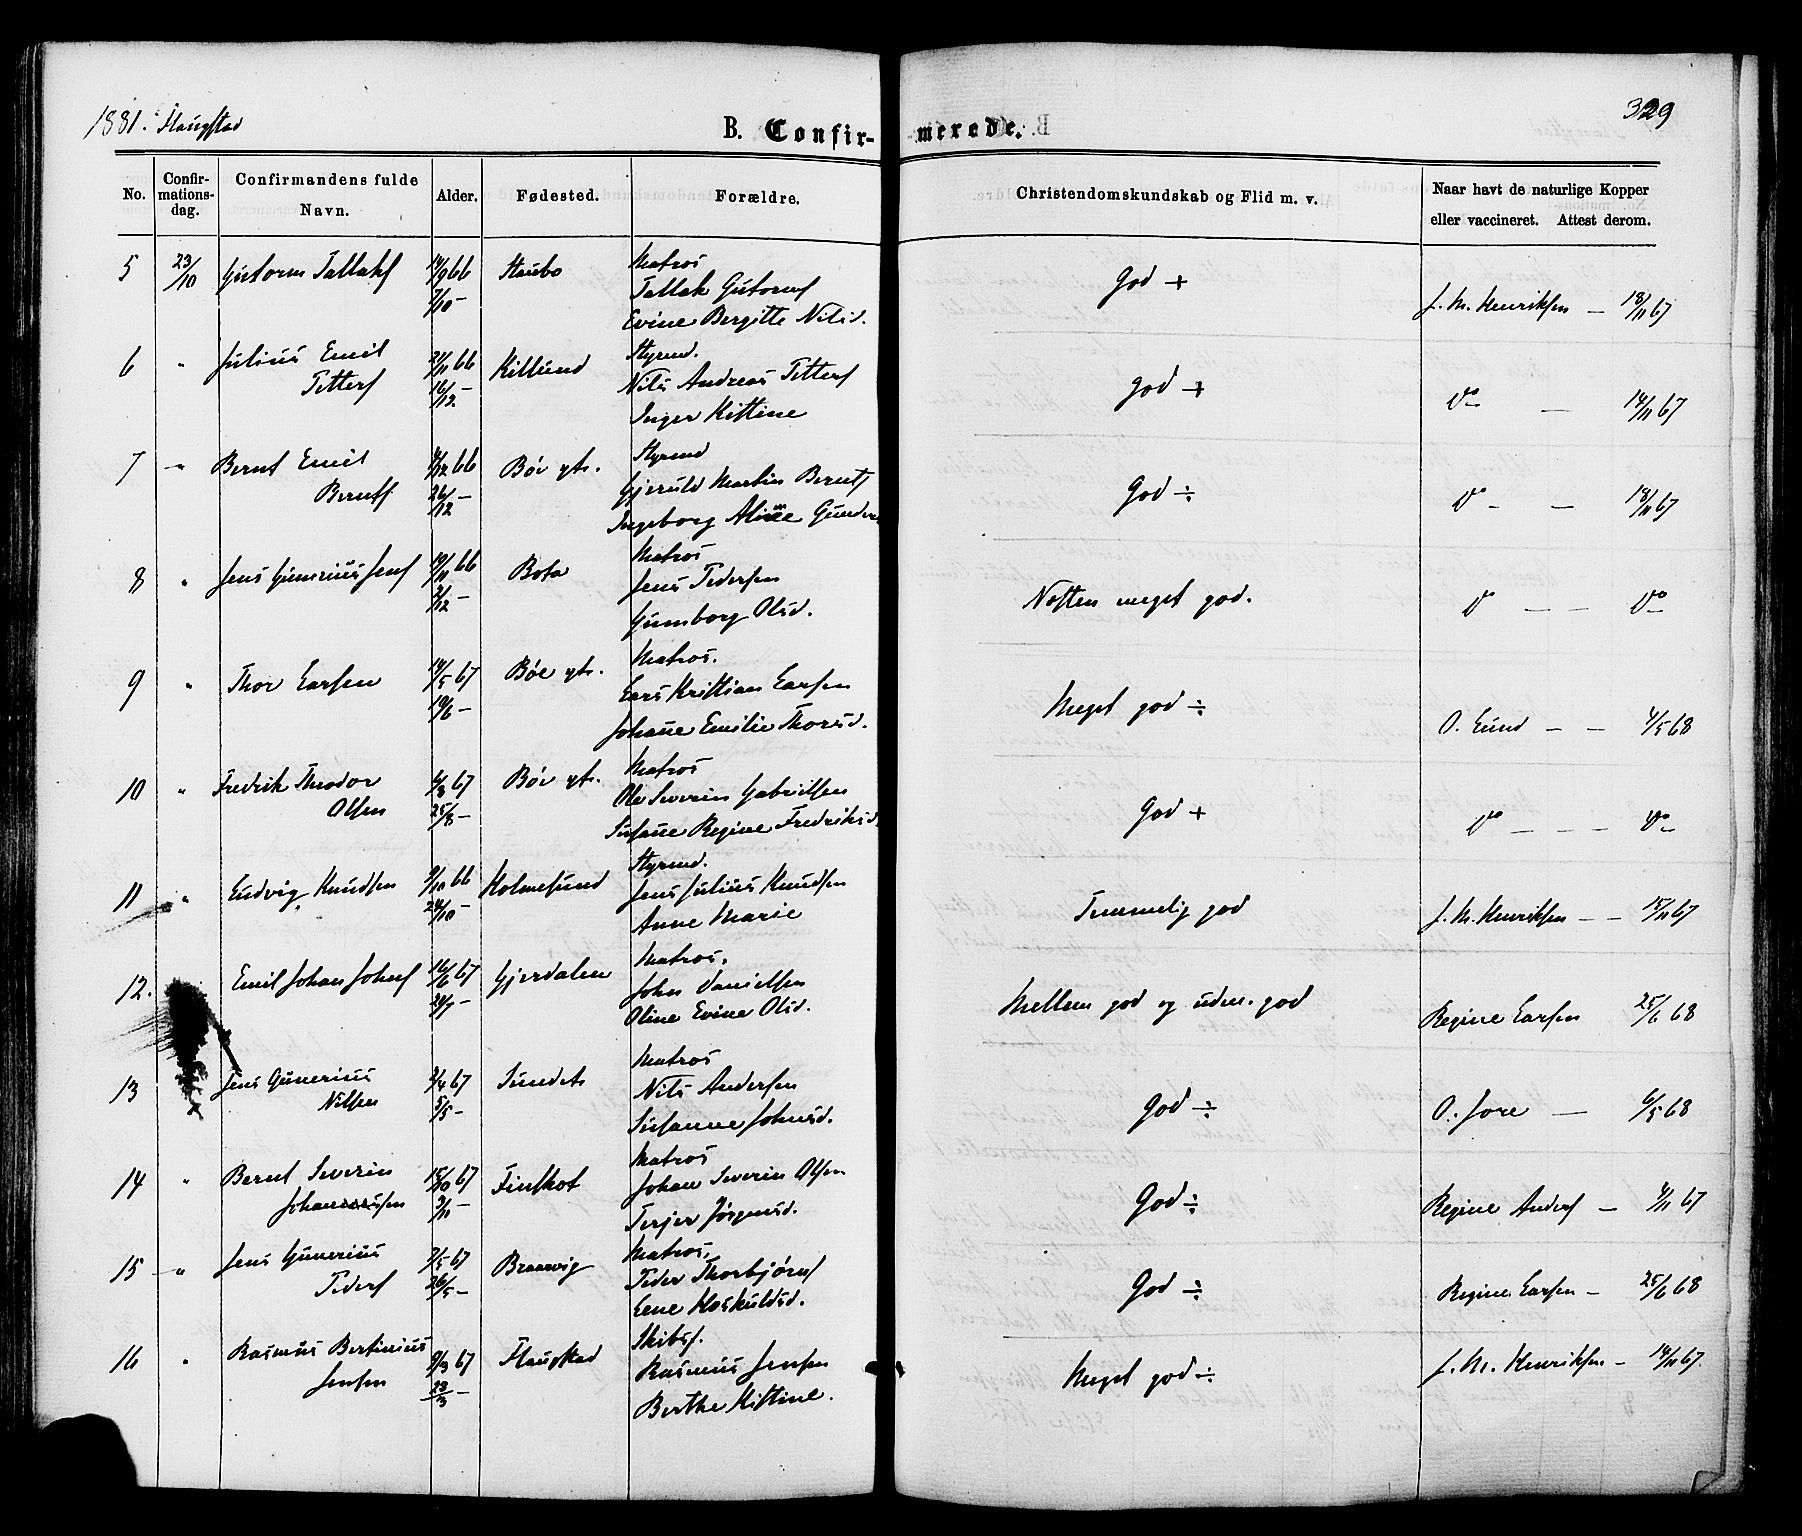 1881. Flaugstad
329
B. Confir-merede.
No. Confir-mations-dag. Confirmandens fulde Navn. Alder. Fødested. Forældre. Christendomskundskab og Flid m. v. Naar havt de naturlige Kopper eller vaccineret. Attest derom.
5 23/10 Guttorm Tallaks 14/9 66 Staubo Matros God + J. M. Henriksen — 18/11 67
7/10 – Tallak Guttorms
Evine Bergitte Nilsd.
6 " Julius Emil 21/11 66 Killund Styrmd. God + Do — 14/11 67
Petters 16/12 – Nils Andreas Petters
Inger Kistine
7 " Bernt Emil 66 Bøe ytr. Styrmd God ÷ Do – – 18/11 67
Bernts 26/12 – Gjeruld Martin Bernts
Ingeborg Aline Gunders
8 " Jens Gunerius Jens 19/11 66 Bota Matros Næsten meget god. Do – – Do
2/12 – Jens Pedersen
Gunborg Olsd.
9 " Thor Larsen 14/5 67 Bøe ytr. Matros. Meget god ÷ O. Lund – – 4/5 68
19/6 – Lars Kristian Larsen
Johanne Emilie Thorsd.
10 " Fredrik Theodor 67 Bøe ytr. Matros God + Do – – – Do
Olsen 25/8 – Ole Severin Gabrielsen
Susanne Regine Fredriksd.
11 " Ludvig Knudsen 9/10 66 Holmesund Styrmd. Temmelig god J. M. Henriksen – – 15/11 67
24/10 – Jens Julius Knudsen
Anne Marie
12. Emil Johan Johns 16/6 67 Gjerdalen Matros. Mellem god og udm. god Regine Larsen 25/6 68
– John Danielsen
Oline Evine Olsd.
13 Jens Gunerius 2/4 67 Sundet Matros God ÷ O. Jore — 6/5 68
Nilsen 5/5 – Nils Andersen
Susanne Johnsd.
14 " Bernt Severin 15/10 67 Matros God ÷ Regine Anders – 4/11 67
Johannessen 3/11 – Johan Severin Olsen
Terjer Jørgensd.
15 " Jens Gunerius 7/5 67 Braarvig Matros, God ÷ Regine Larsen – 25/6 68
Peders 26/5 – Peder Thorbjørns
Lene Hoskuldsd.
16 " Rasmus Bertinius 9/3 67 Flaugstad Skibsf. Meget god ÷ J. M. Henriksen – 14/11 67.
Jensen 23/3 – Rasmus Jensen
Berthe Kistine.